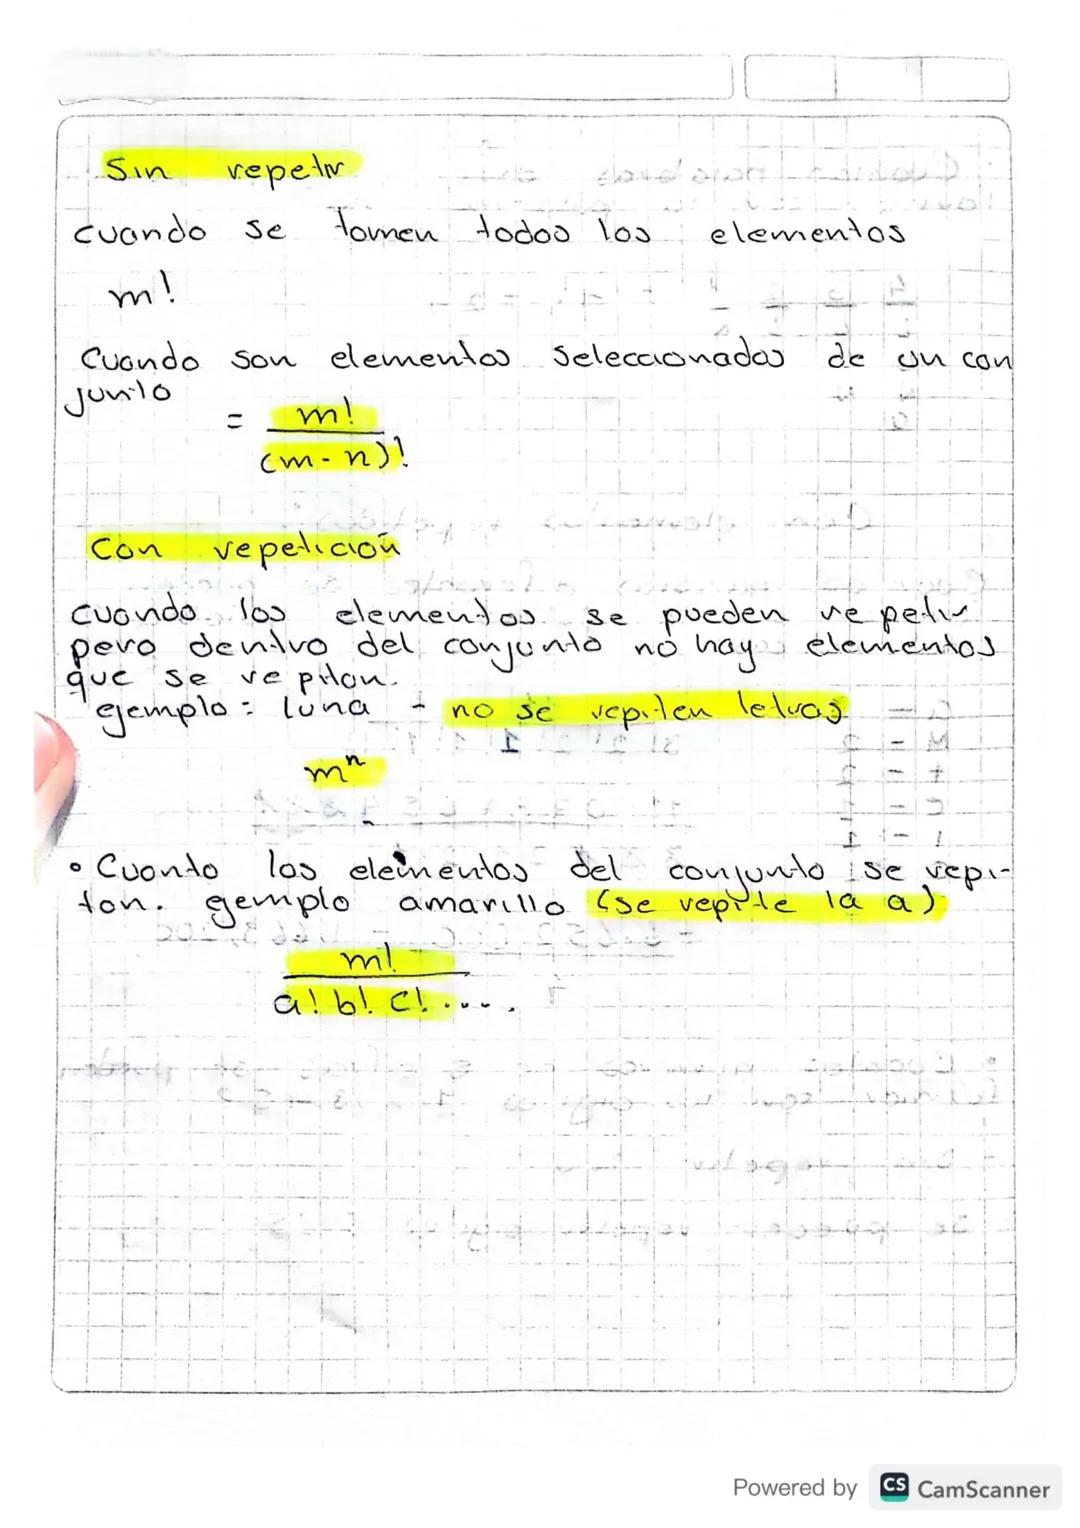 Sin repetir
cuando se tomen todos los elementos
m!
Cuando son elementos seleccionados de un con
junto
= m!
(m-n)!
Con repetición
cuando los elementos se pueden repetir
pero dentro del conjunto no hay elementos
que se repitan.
ejemplo: luna - no se repiten letras
mⁿ
• Cuanto los elementos del conjunto se repi-
tan. ejemplo amarillo (se repite la a)
m!
a! b! c! .....
Powered by CS CamScanner